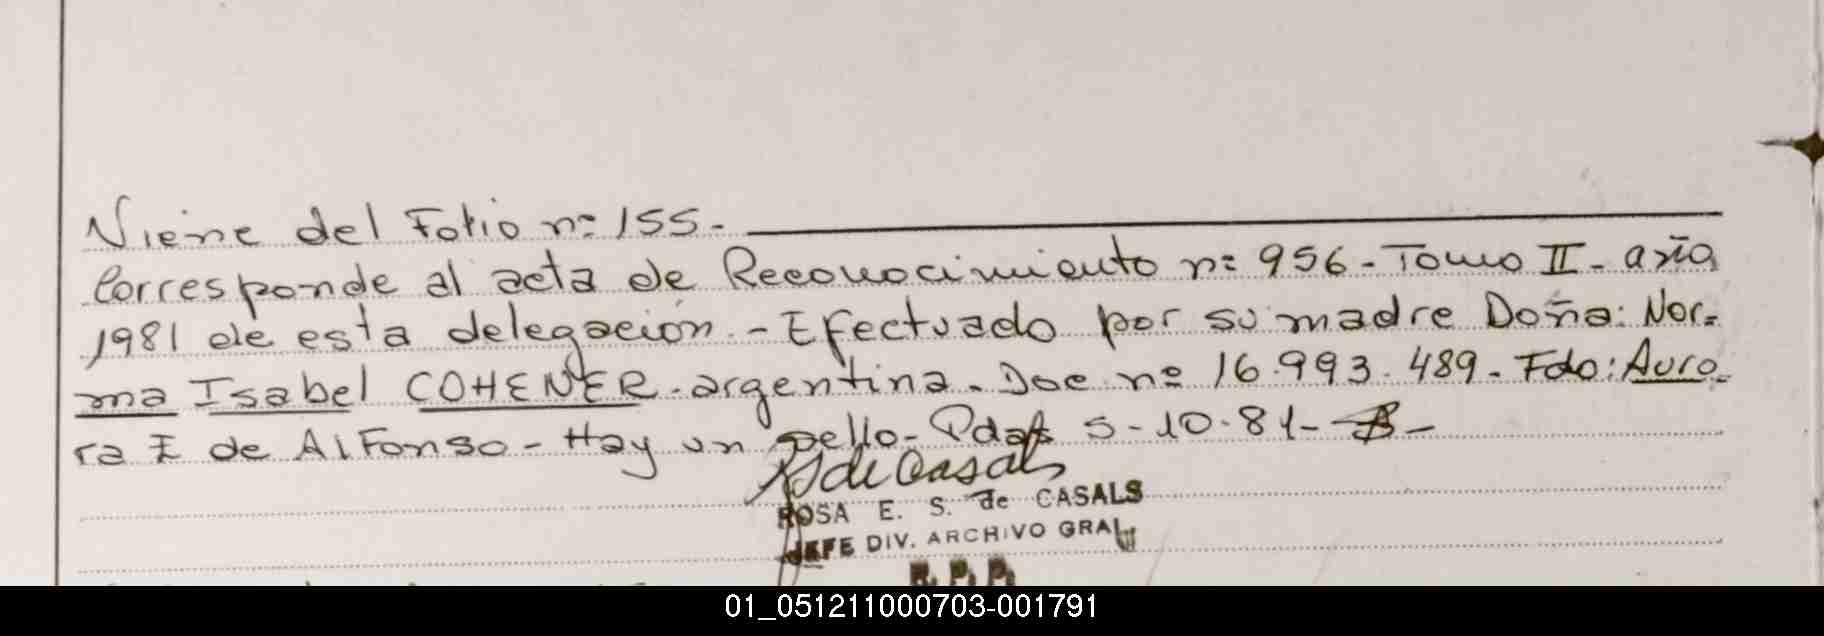 Viene del Folio nº 155.-
Corresponde al acta de Reconocimiento nº 956 - Tomo II - año
1981 de esta delegación. - Efectuado por su madre Doña: Nor-
ma Isabel COHENER - argentina. Doc nº 16.993.489 - Fdo: Auro-
ra E de Alfonso - Hay un sello - Pdas 5-10-81-
RS de Casals
ROSA E. S. de CASALS
JEFE DIV. ARCHIVO GRAL
R. P. P.
01_051211000703-001791